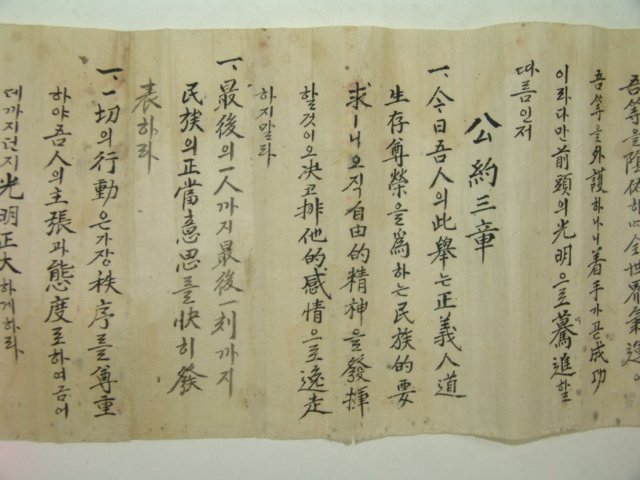 吾等을陰佑하며全世界氣運이
吾等을外護하나니着手가곧成功
이라다만前頭의光明으로驀進할
따름인저
公約三章
一、今日吾人의此擧는正義人道
生存尊榮을爲하는民族的要
求ㅣ니오직自由的精神을發揮
할것이오決코排他的感情으로逸走
하지말라
一、最後의一人까지最後一刻까지
民族의正當意思를快히發
表하라
一、一切의行動은가장秩序를尊重
하야吾人의主張과態度로하여금어
데까지던지光明正大하게하라